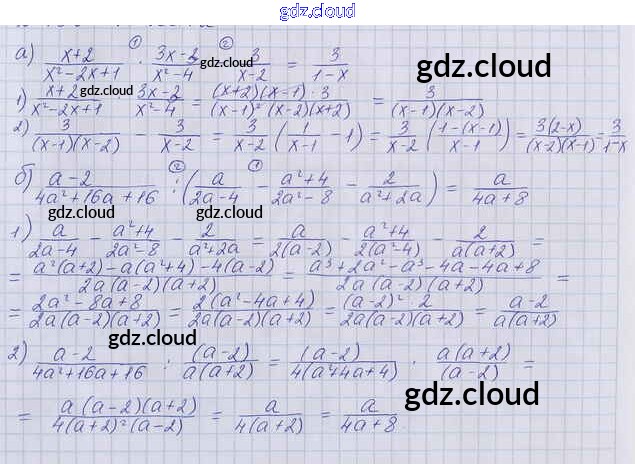 gdz.cloud
а) (x+2)/(x²-2x+1) · (3x-3)/(x²-4) - 3/(x-2) = 3/(1-x)
gdz.cloud
gdz.cloud
1) (x+2)/(x²-2x+1) · (3x-3)/(x²-4) = ((x+2)(x-1)·3)/((x-1)²(x-2)(x+2)) = 3/((x-1)(x-2))
2) 3/((x-1)(x-2)) - 3/(x-2) = 3/(x-2) (1/(x-1) - 1) = 3/(x-2) ((1-(x-1))/(x-1)) = 3(2-x)/((x-2)(x-1)) = 3/(1-x)
б) (a-2)/(4a²+16a+16) : (a/(2a-4) - (a²+4)/(2a²-8) - 2/(a²+2a)) = a/(4a+8)
gdz.cloud
gdz.cloud
1) a/(2a-4) - (a²+4)/(2a²-8) - 2/(a²+2a) = a/(2(a-2)) - (a²+4)/(2(a²-4)) - 2/(a(a+2)) =
= (a²(a+2)-a(a²+4)-4(a-2))/(2a(a-2)(a+2)) = (a³+2a²-a³-4a-4a+8)/(2a(a-2)(a+2)) =
= (2a²-8a+8)/(2a(a-2)(a+2)) = 2(a²-4a+4)/(2a(a-2)(a+2)) = ((a-2)²2)/(2a(a-2)(a+2)) = (a-2)/(a(a+2))
gdz.cloud
2) (a-2)/(4a²+16a+16) : (a-2)/(a(a+2)) = (a-2)/(4(a²+4a+4)) · a(a+2)/(a-2) =
gdz.cloud
= a(a-2)(a+2)/(4(a+2)²(a-2)) = a/(4(a+2)) = a/(4a+8)
gdz.cloud